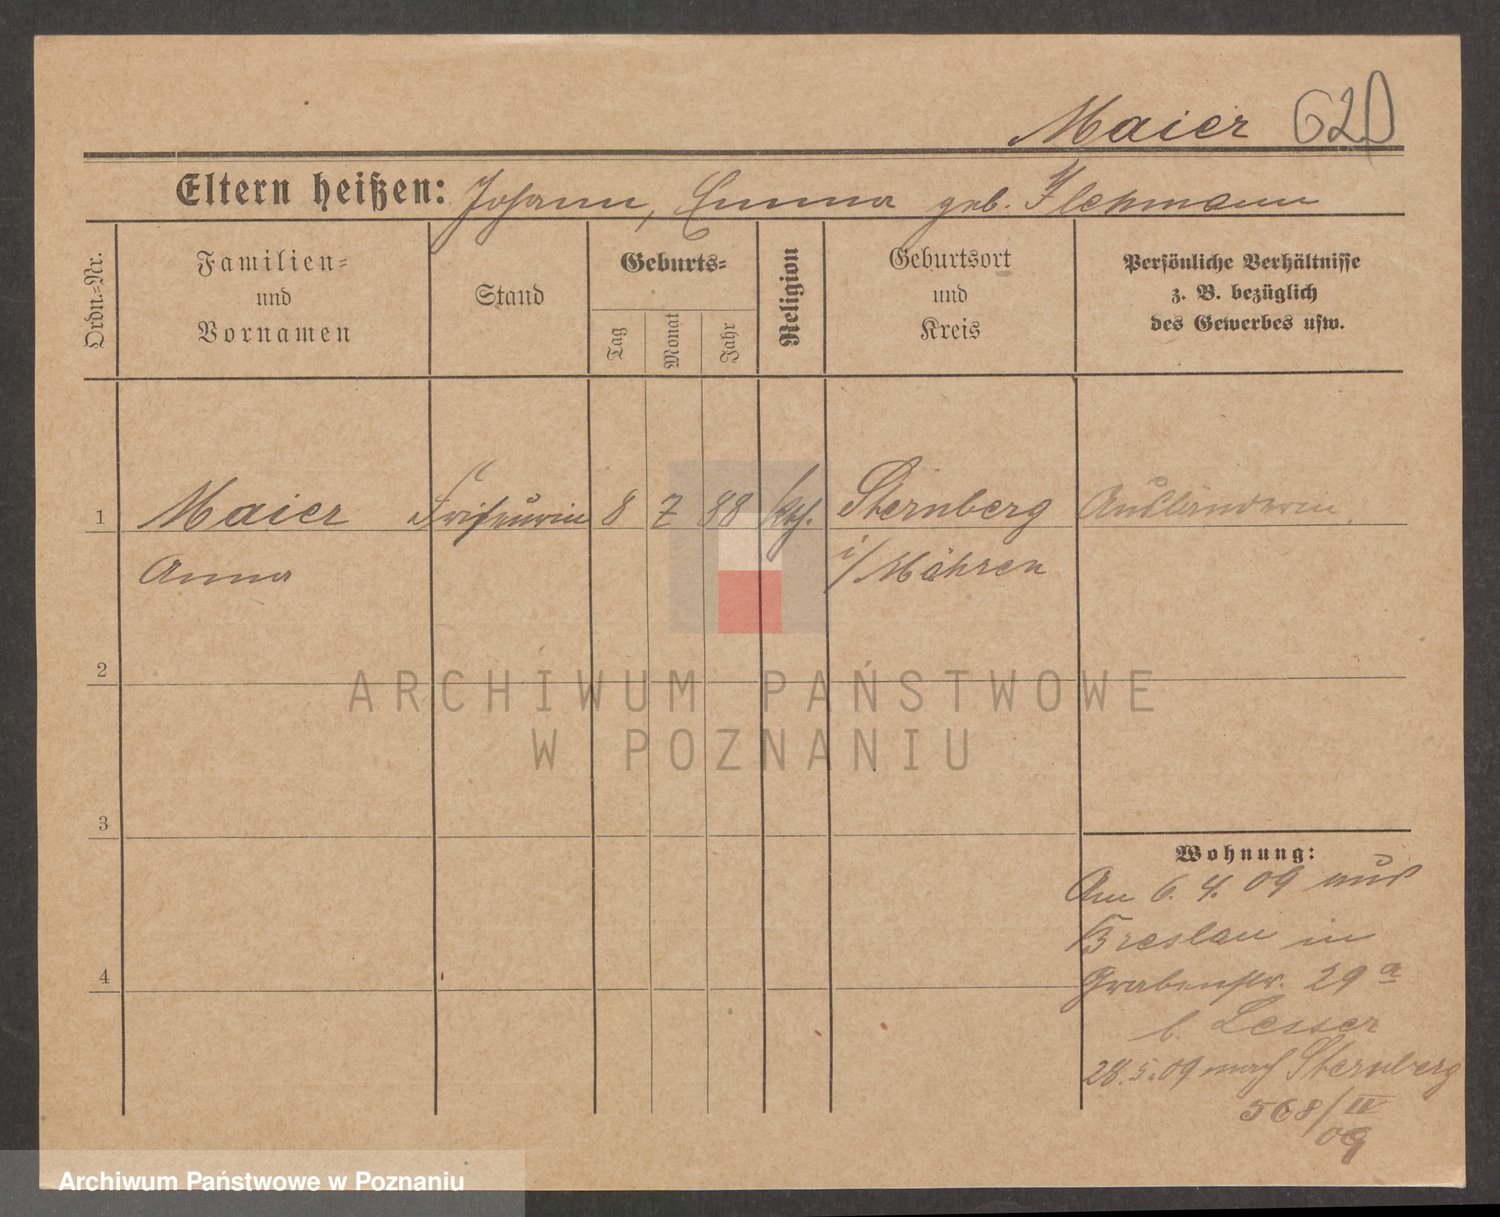 Maier 620
Eltern heißen: Johann, Emma geb. Flehmann
Ordn.=Nr.
Familien=
und
Vornamen
Stand
Geburts=
Tag
Monat
Jahr
Religion
Geburtsort
und
Kreis
Persönliche Verhältnisse
z. B. bezüglich
des Gewerbes usw.
1 Maier Friseurin 8 7 88 kth. Sternberg Ausländerin.
Anna i/Mähren
2
ARCHIWUM PAŃSTWOWE
W POZNANIU
3
Wohnung:
Am 6. 4. 09 aus
Breslau in
4 Grabenstr. 29 a
b. Lesser
28.5.09 nach Sternberg
568/II
09
Archiwum Państwowe w Poznaniu